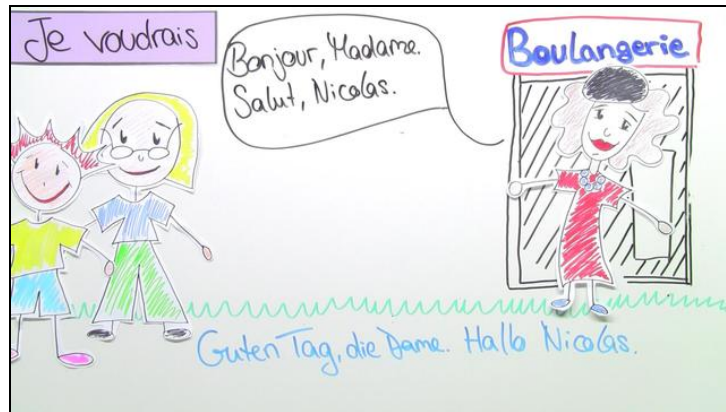 Je voudrais
Bonjour, Madame.
Salut, Nicolas.
Boulangerie
Guten Tag, die Dame. Hallo Nicolas.